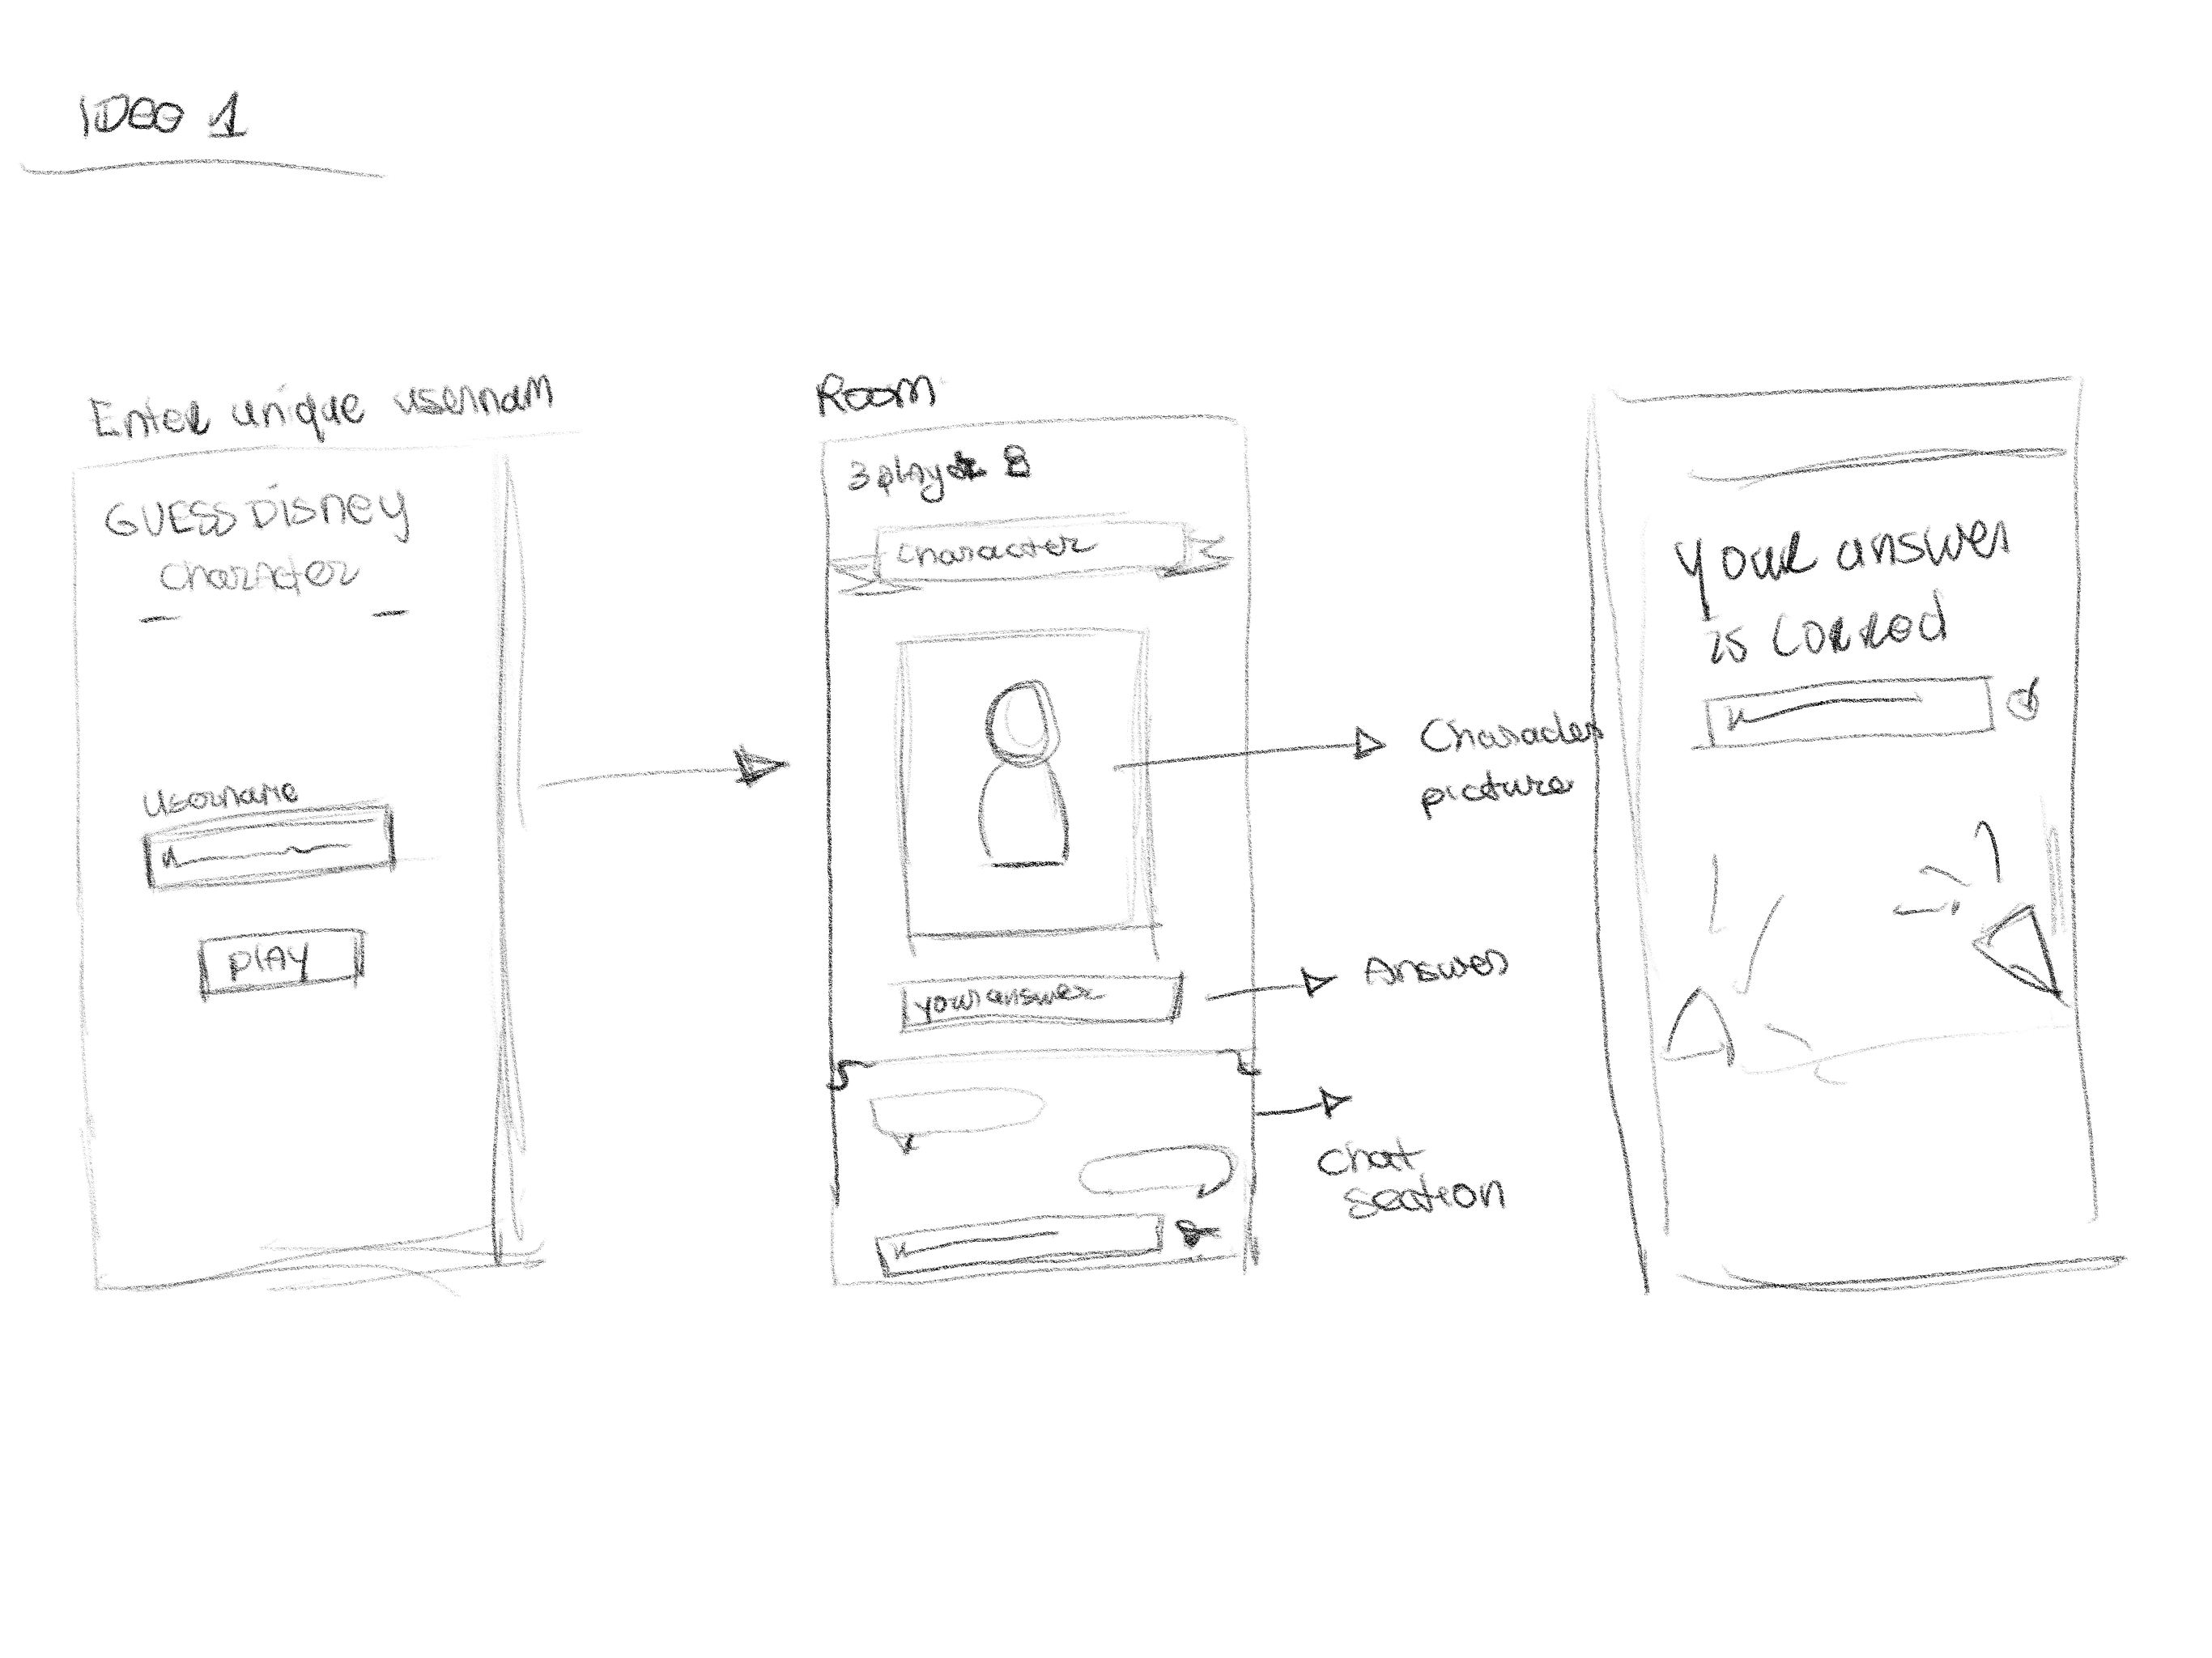 IDEA 1
Enter unique usernam
GUESS Disney
character
Username
PLAY
Room
3 player
character
your answer
Character
picture
Answer
Chat
section
Your answer
is correct